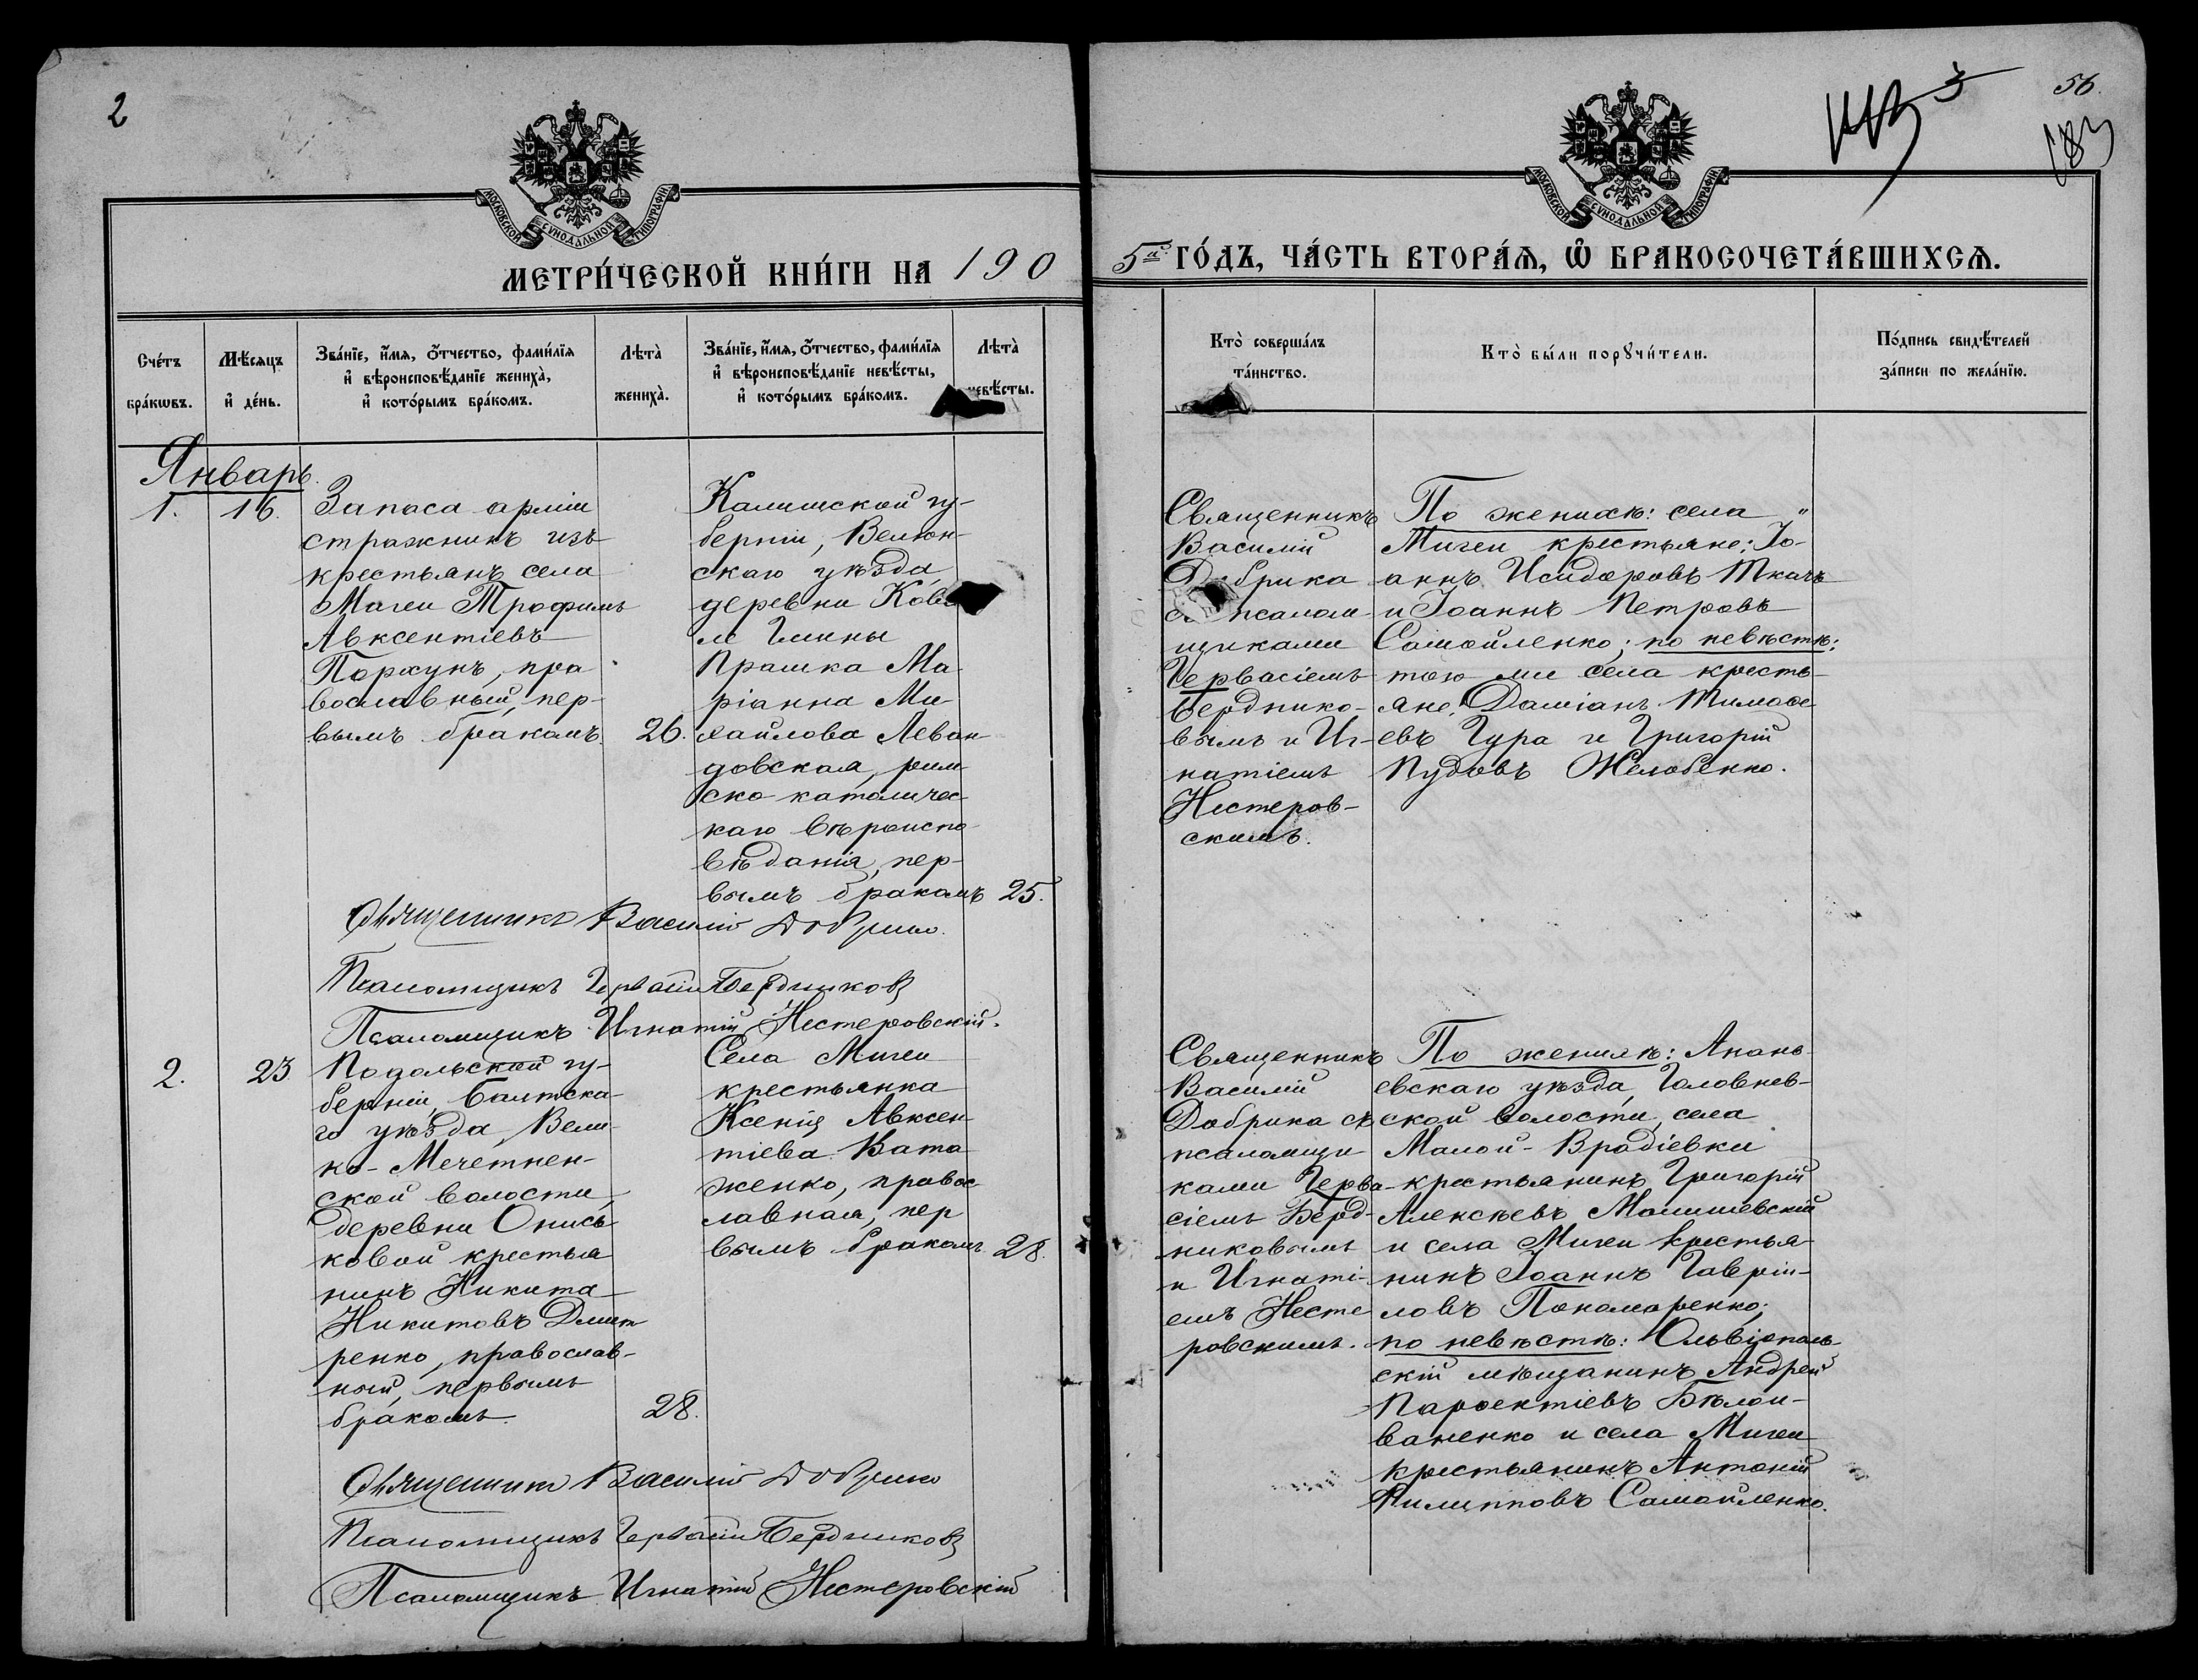 2
56
183
МОСКОВСКОЙ СѴНОДАЛЬНОЙ ТИПОГРАФІИ
МОСКОВСКОЙ СѴНОДАЛЬНОЙ ТИПОГРАФІИ
МЕТРИ́ЧЕСКОЙ КНИ́ГИ НА 190
5й ГО́ДЪ, ЧА́СТЬ ВТОРА́Ѧ, Ѽ БРАКОСОЧЕТА́ВШИХСѦ.
Сче́тъ
бра́кѡвъ.
Мѣ́сѧцъ
и҆ де́нь.
Зва́нїе, и҆́мѧ, ѻ҆́тчество, фами́лїѧ
и҆ вѣроисповѣ́данїе жениха̀,
и҆ кото́рымъ бра́комъ.
Лѣта̀
жениха̀.
Зва́нїе, и҆́мѧ, ѻ҆́тчество, фами́лїѧ
и҆ вѣроисповѣ́данїе невѣ́сты,
и҆ кото́рымъ бра́комъ.
Лѣта̀
невѣ́сты.
Кто̀ соверша́лъ
та́инство.
Кто̀ бы́ли порꙋчи́тели.
По́дпись свидѣ́телей
за́писи по жела́нїю.
Январь.
1.
16.
Запаса арміи
стражникъ изъ
крестьянъ села
Мигеи Трофимъ
Авксентіевъ
Порхунъ, пра
вославный, пер-
вымъ бракомъ.
26.
Калишской гу-
берніи, Велюн-
скаго уѣзда
деревни Кова
ле Гмины
Прашка Ма-
ріанна Ми-
хайлова Леван
довская, рим
ско католичес
каго вѣроиспо
вѣданія, пер-
вымъ бракомъ
25.
Священникъ
Василій
Добрика
съ псалом-
щиками
Гервасіемъ
Берднико-
вымъ и Иг-
натіемъ
Нестеров-
скимъ.
По женихѣ: села "
Мигеи крестьяне: Іо-
аннъ Исидоровъ Ткачъ
и Іоаннъ Петровъ
Самойленко; по невѣстѣ:
тою же села кресть-
яне: Даміанъ Тимоѳе
евъ Гура и Григорій
Пудовъ Желобенко.
Священникъ Василій Добрика
Псаломщикъ Гервасій Бердниковъ
Псаломщикъ Игнатій Нестеровскій.
2.
23
Подольской гу-
берніи, Балтска-
го уѣзда, Вели-
ко-Мечетнен-
ской волости,
деревни Онись
ковой крестья
нинъ Никита
Никитовъ Дмит
ренко, православ-
ный, первымъ
бракомъ.
28.
Села Мигеи
крестьянка
Ксенія Авксен-
тіева Вата
женко, правос
лавная, пер
вымъ бракомъ
28.
Священникъ
Василій
Добрика съ
псаломщи
ками Герва-
сіемъ Берд-
никовымъ
и Игнаті-
емъ Несте
ровскимъ.
По женихѣ: Анань-
евскаго уѣзда, Головнев-
ской волости, села
Малой-Врадіевки
крестьянинъ Григорій
Алексѣевъ Малишевскій
и села Мигеи крестья-
нинъ Іоаннъ Гавріи-
ловъ Пономаренко;
по невѣстѣ: Ольвіополь-
скій мѣщанинъ Андрей
Парѳентіевъ Бѣлои-
ваненко и села Мигеи
крестьянинъ Антоній
Филипповъ Самойленко.
Священникъ Василій Добрика
Псаломщикъ Гервасій Бердниковъ
Псаломщикъ Игнатій Нестеровскій